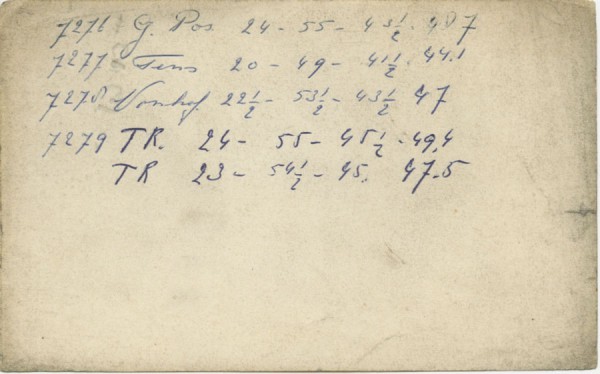 7276 G. Pos 24 - 55 - 43½ - 48.7
7277 Tens 20 - 49 - 41½ 44.1
7278 Vomhof 22½ - 53½ - 43½ 47
7279 TR. 24 - 55 - 45½ - 49,4
TR 23 - 54½ - 45. 47.5